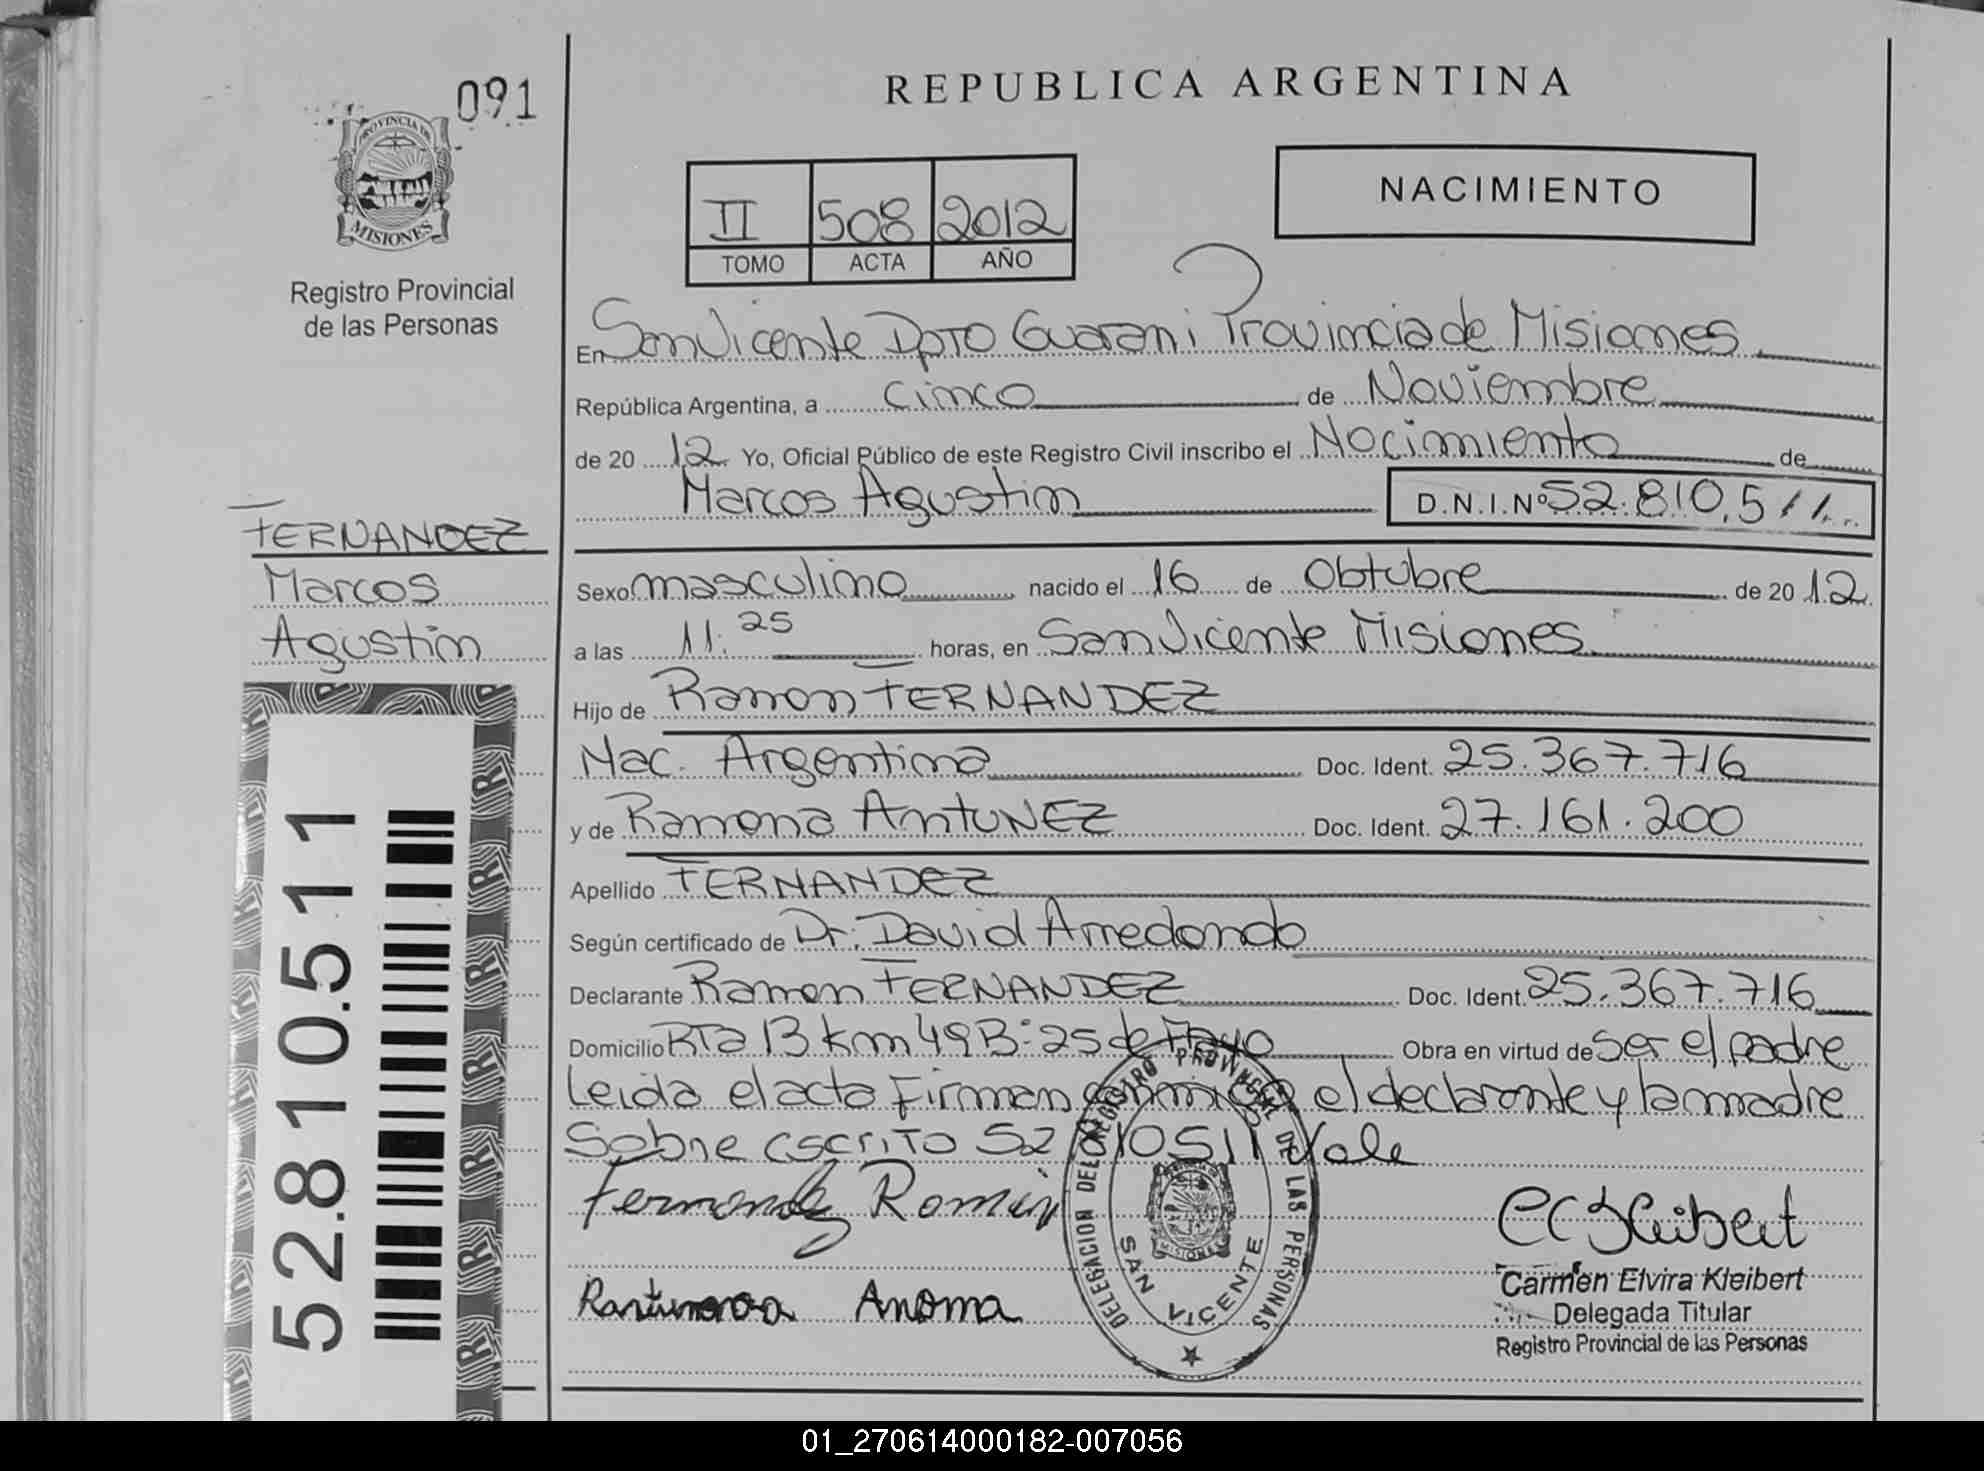 091
PROVINCIA DE
MISIONES
Registro Provincial
de las Personas
REPUBLICA ARGENTINA
II 508 2012
TOMO ACTA AÑO
NACIMIENTO
En San Vicente Dpto Guarani Provincia de Misiones
República Argentina, a cinco de Noviembre
de 20 12 Yo, Oficial Público de este Registro Civil inscribo el Nacimiento de
Marcos Agustin D.N.I.Nº 52.810.511
FERNANDEZ
Marcos
Agustin
Sexo masculino nacido el 16 de Obtubre de 20 12
a las 11:25 horas, en San Vicente Misiones
Hijo de Ramon FERNANDEZ
Nac. Argentina Doc. Ident. 25.367.716
y de Ramona AntuNEZ Doc. Ident. 27.161.200
Apellido FERNANDEZ
Según certificado de Dr. David Arredondo
Declarante Ramon FERNANDEZ Doc. Ident. 25.367.716
Domicilio RTa 13 Km 49 B: 25 de Mayo Obra en virtud de Ser el padre
Leida el acta Firman conmigo el declarante y la madre
Sobre escrito 52810511 Vale
Fernandez Ramón
Anoma
DELEGACION DEL REGISTRO PROVINCIAL DE LAS PERSONAS
MISIONES
SAN VICENTE
Carmen Elvira Kleibert
Delegada Titular
Registro Provincial de las Personas
52.810.511
01_270614000182-007056